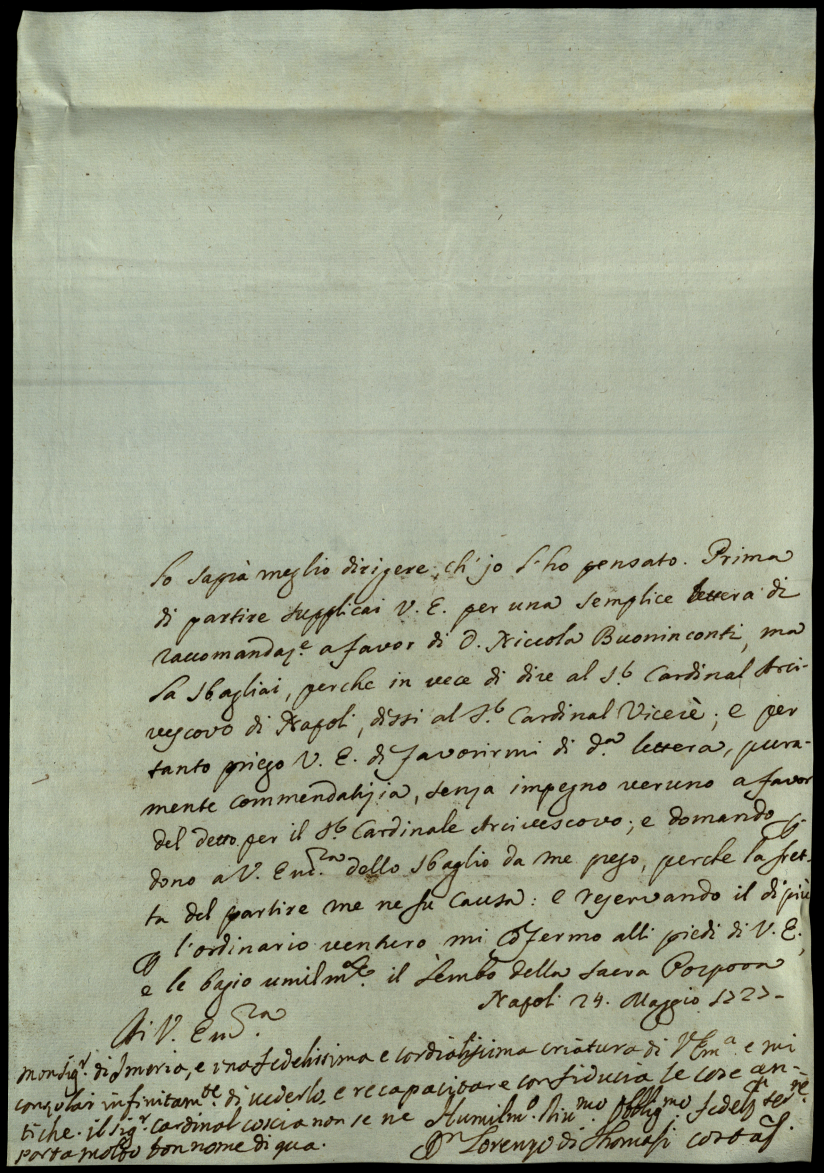 lo saprà meglio dirigere, ch'jo l'ho pensato. Prima
di partire supplicai V. E. per una semplice lettera di
raccomandaz.e a favor di D. Niccola Buoninconti, ma
la sbagliai, perche in vece di dire al S.r Cardinal Arci-
vescovo di Napoli, dissi al S.r Cardinal Vicerè; e per
tanto priego V. E. di favorirmi di d.a lettera, pura-
mente commendatizia, senza impegno veruno a favor
del detto per il S.r Cardinale Arcivescovo; e domando per-
dono a V. Em.za dello sbaglio da me preso, perche la fret-
ta del partire me ne fu causa: e reservando il di più
per l'ordinario venturo mi confermo alli piedi di V. E.,
e le bagio umilm.te il lembo della Sacra Porpora
Napoli 24. Maggio 1727-
Di V. Em.za
Monsig.r di Smeria, e una fedelissima e cordialissima criatura di V. Em.a e mi
consolai infinitam.te di vederlo e recapacitare con fiducia le cose an-
tiche. il sig.r cardinal coscia non se ne
porta molto bon nome di qua.
Humilm.o Div.mo Obblig.mo fedeliss. ser.re
D.n Lorenzo di Thomasi